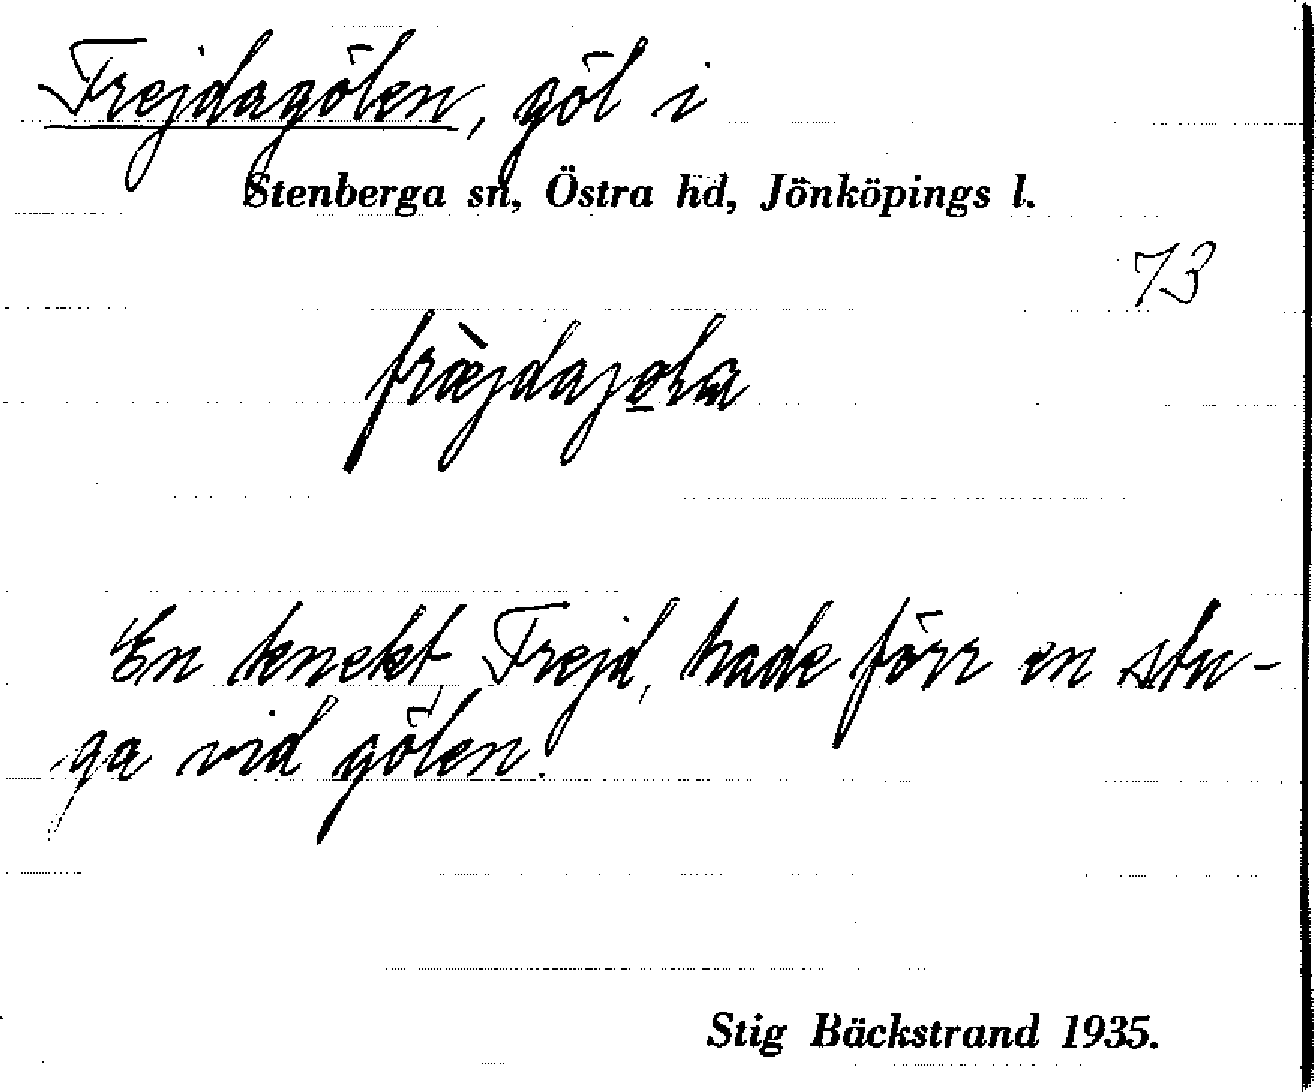 Frejdagölen, göl i
Stenberga sn, Östra hd, Jönköpings l.
73
En knekt, Frejd, hade förr en stu-
ga vid gölen.
Stig Bäckstrand 1935.